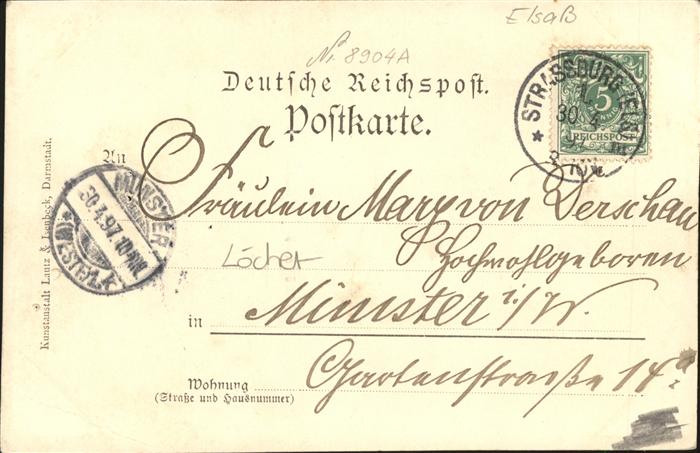 Elsaß
Nr. 8904A
Deutsche Reichspost.
Postkarte.
STRASSBURG (ELS)
1.
30 4
5
REICHSPOST
An
Fräulein Mary von Derschau
Hochwohlgeboren
Löcher
in Münster i/W.
Gartenstraße 14a
Wohnung
(Straße und Hausnummer)
MÜNSTER
30.4.97.
WESTF.
Kunstanstalt Lautz & Isenbeck, Darmstadt.